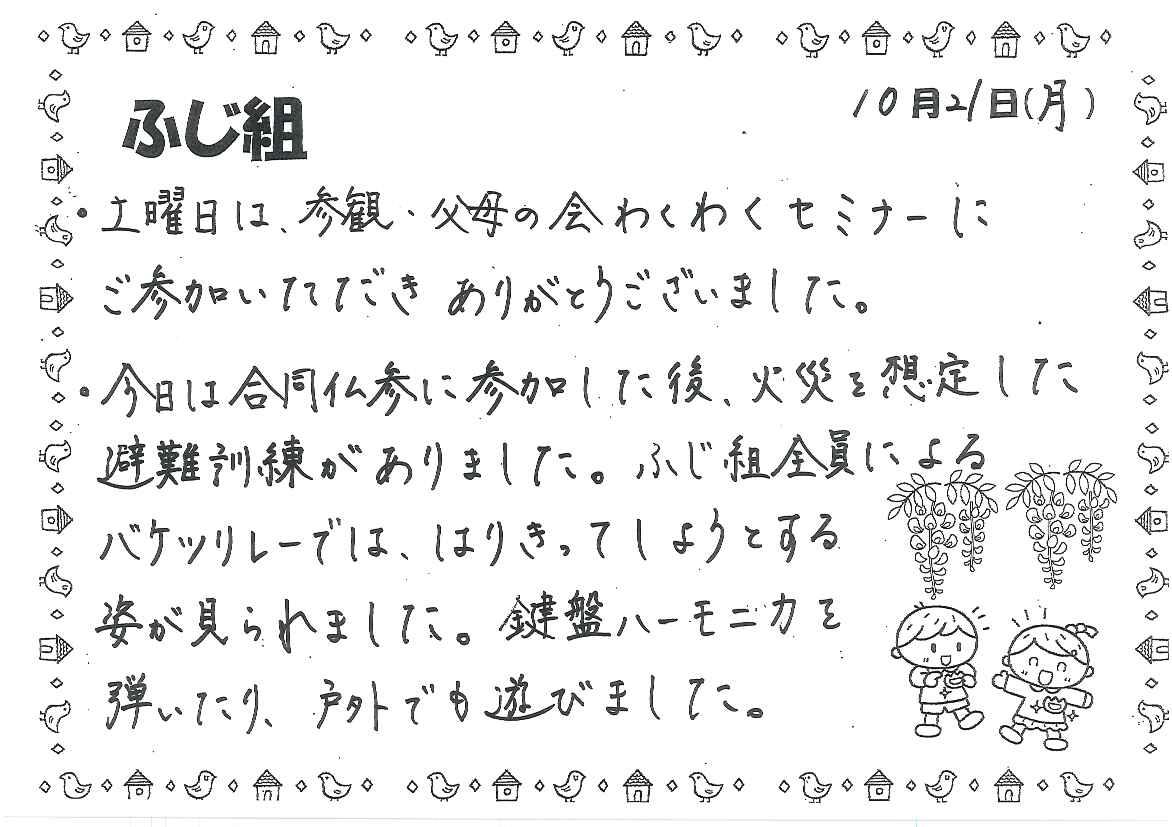 ふじ組
10月21日(月)
・土曜日は、参観・父母の会わくわくセミナーに
ご参加いただき ありがとうございました。
・今日は合同仏参に参加した後、火災を想定した
避難訓練がありました。ふじ組全員による
バケツリレーでは、はりきってしようとする
姿が見られました。鍵盤ハーモニカを
弾いたり、戸外でも遊びました。